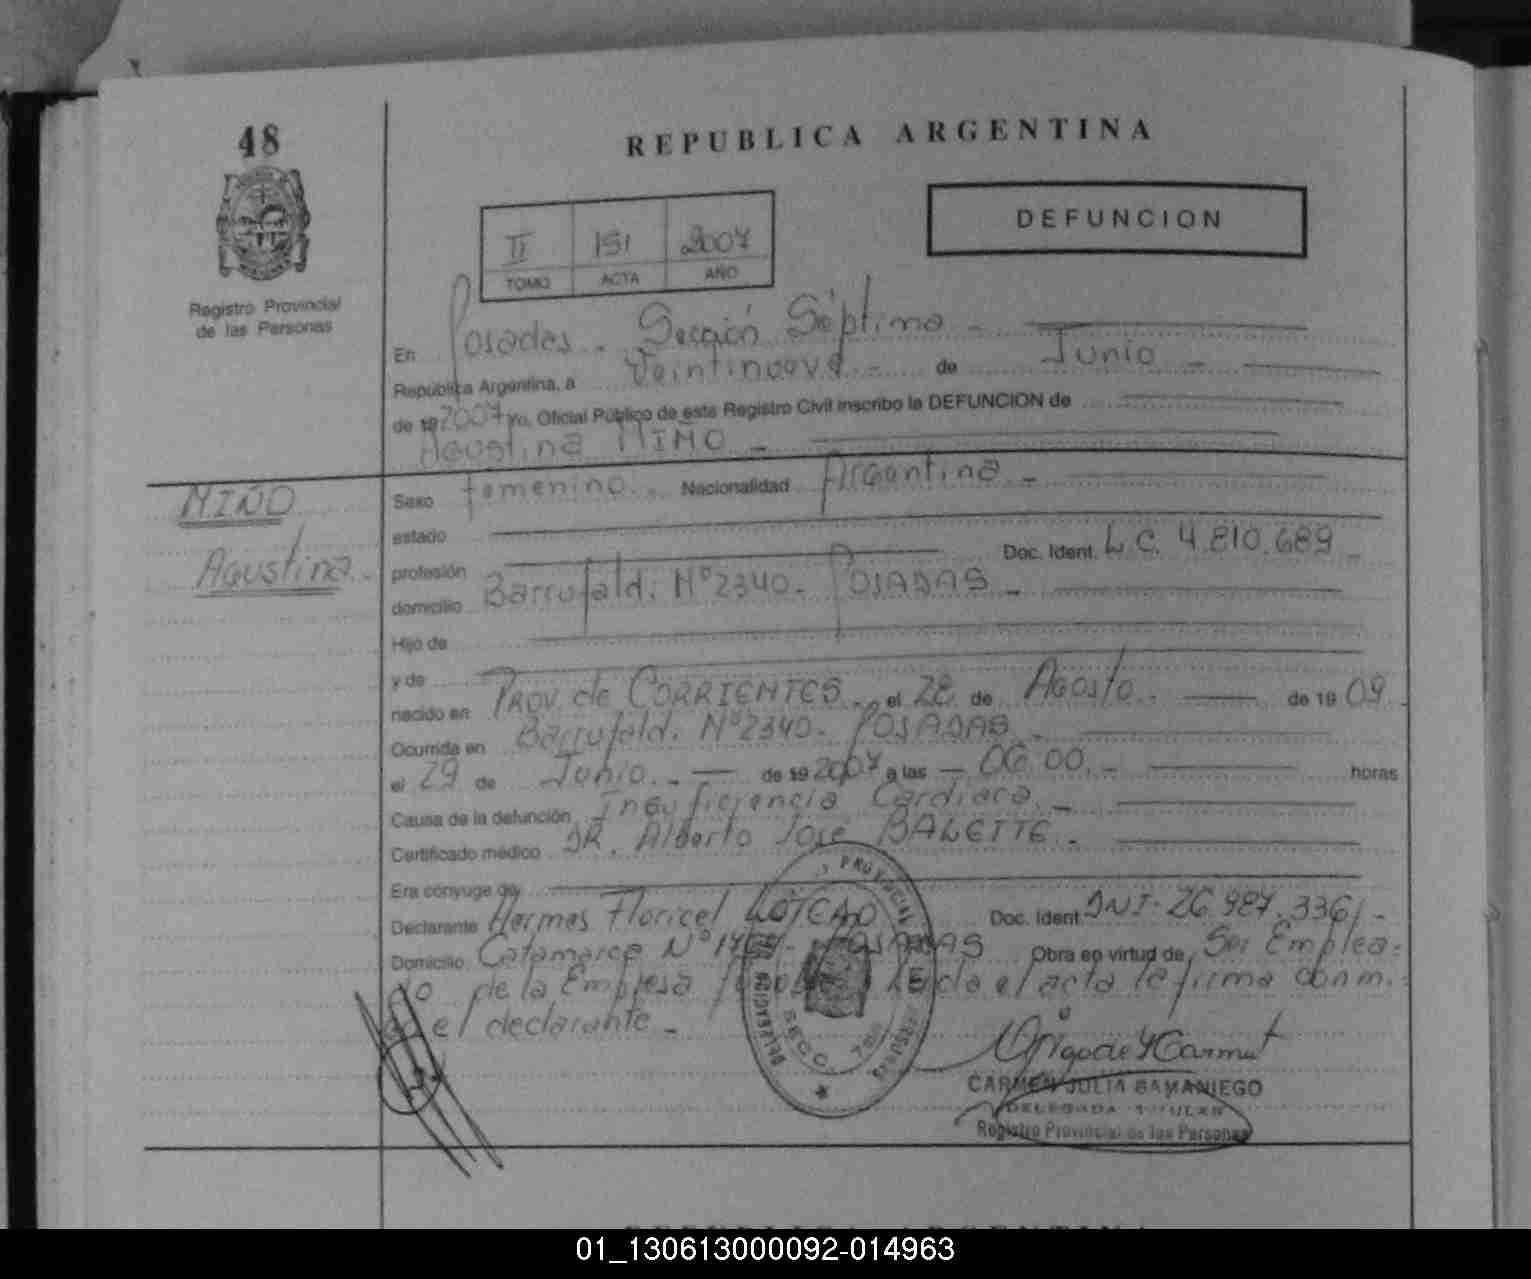 48
REPUBLICA ARGENTINA
DEFUNCION
II 151 2007
TOMO ACTA AÑO
Registro Provincial
de las Personas
En Posadas - Sección Séptima -
República Argentina, a Veintinueve - de Junio -
de 19 2007 yo, Oficial Público de este Registro Civil inscribo la DEFUNCION de
Agustina MIÑO -
MIÑO
Agustina -
Sexo femenino - Nacionalidad Argentina -
estado
profesión Doc. Ident. L.C. 4.810.689 -
domicilio Barrufaldi Nº 2340 - POSADAS -
Hijo de
y de
nacido en PROV. de CORRIENTES - el 28 de Agosto - de 19 09
Ocurrida en Barrufaldi Nº 2340 - POSADAS -
el 29 de Junio - de 19 2007 a las - 06:00 - horas
Causa de la defunción Insuficiencia Cardiaca -
Certificado médico DR. Alberto José BALETTE -
Era cónyuge de
Declarante Hermes Floricel Doc. Ident. DNI. 26.987.336/-
Domicilio Catamarca Nº POSADAS Obra en virtud de Ser Emplea-
do de la Empresa Leída el acta la firma conm.
go el declarante -
PROVINCIAL
DELEGACION
SECC. 7ma
CARMEN JULIA SAMANIEGO
DELEGADA TITULAR
Registro Provincial de las Personas
REPUBLICA ARGENTINA
01_130613000092-014963